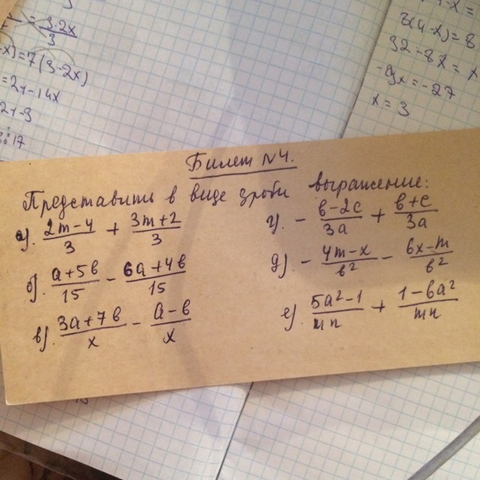 = 3·2x
3
x) = 7(3-2x)
= 21-14x
21-3
17
3(4-x) = 8
32-8x = x
-9x = -27
x = 3
Билет N4.
Представить в виде дроби выражение:
а). (2m-4)/3 + (3m+2)/3
б). (a+5b)/15 - (6a+4b)/15
в). (3a+7b)/x - (a-b)/x
г). - (b-2c)/3a + (b+c)/3a
д). - (4m-x)/b² - (6x-m)/b²
е). (5a²-1)/mn + (1-6a²)/mn